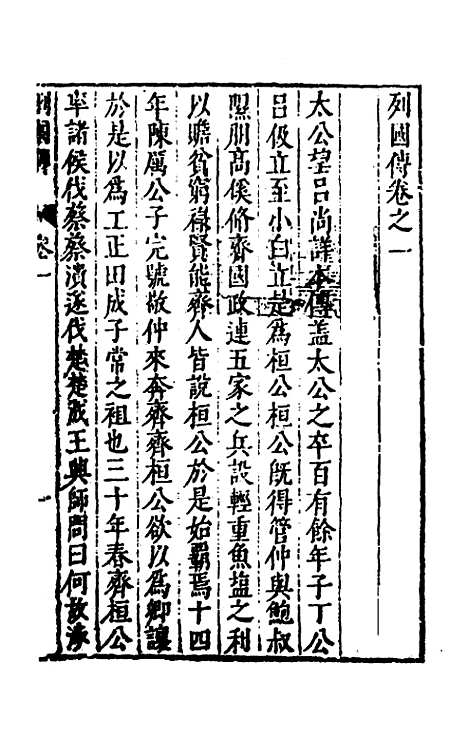 列國傳卷之一
太公望呂尚詳本傳盖太公之卒百有餘年子丁公
呂伋立至小白立是爲桓公桓公旣得管仲與鮑叔
隰朋高傒脩齊國政連五家之兵設輕重魚塩之利
以贍貧窮祿賢能齊人皆說桓公於是始霸焉十四
年陳厲公子完號敬仲來奔齊齊桓公欲以爲卿讓
於是以爲工正田成子常之祖也三十年春齊桓公
率諸侯伐蔡蔡潰遂伐楚楚成王興師問曰何故涉